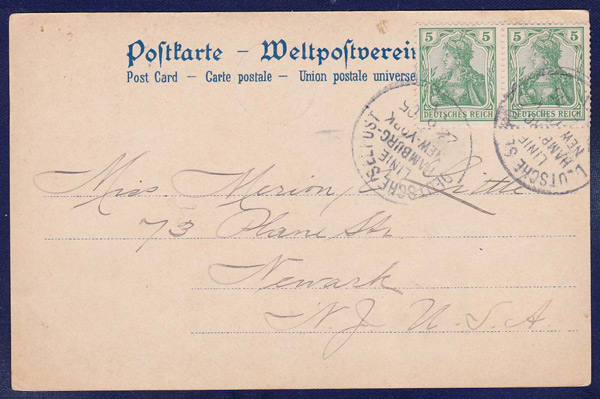 Postkarte – Weltpostverein
Post Card – Carte postale – Union postale universe
5 5 5 5
DEUTSCHES REICH DEUTSCHES REICH
DEUTSCHE SEEPOST
LINIE
HAMBURG-
NEW-YORK
05
DEUTSCHE SE
LINIE
HAMB
NEW-
Miss Merion
73 Plane Str
Newark
N.J. U.S.A.